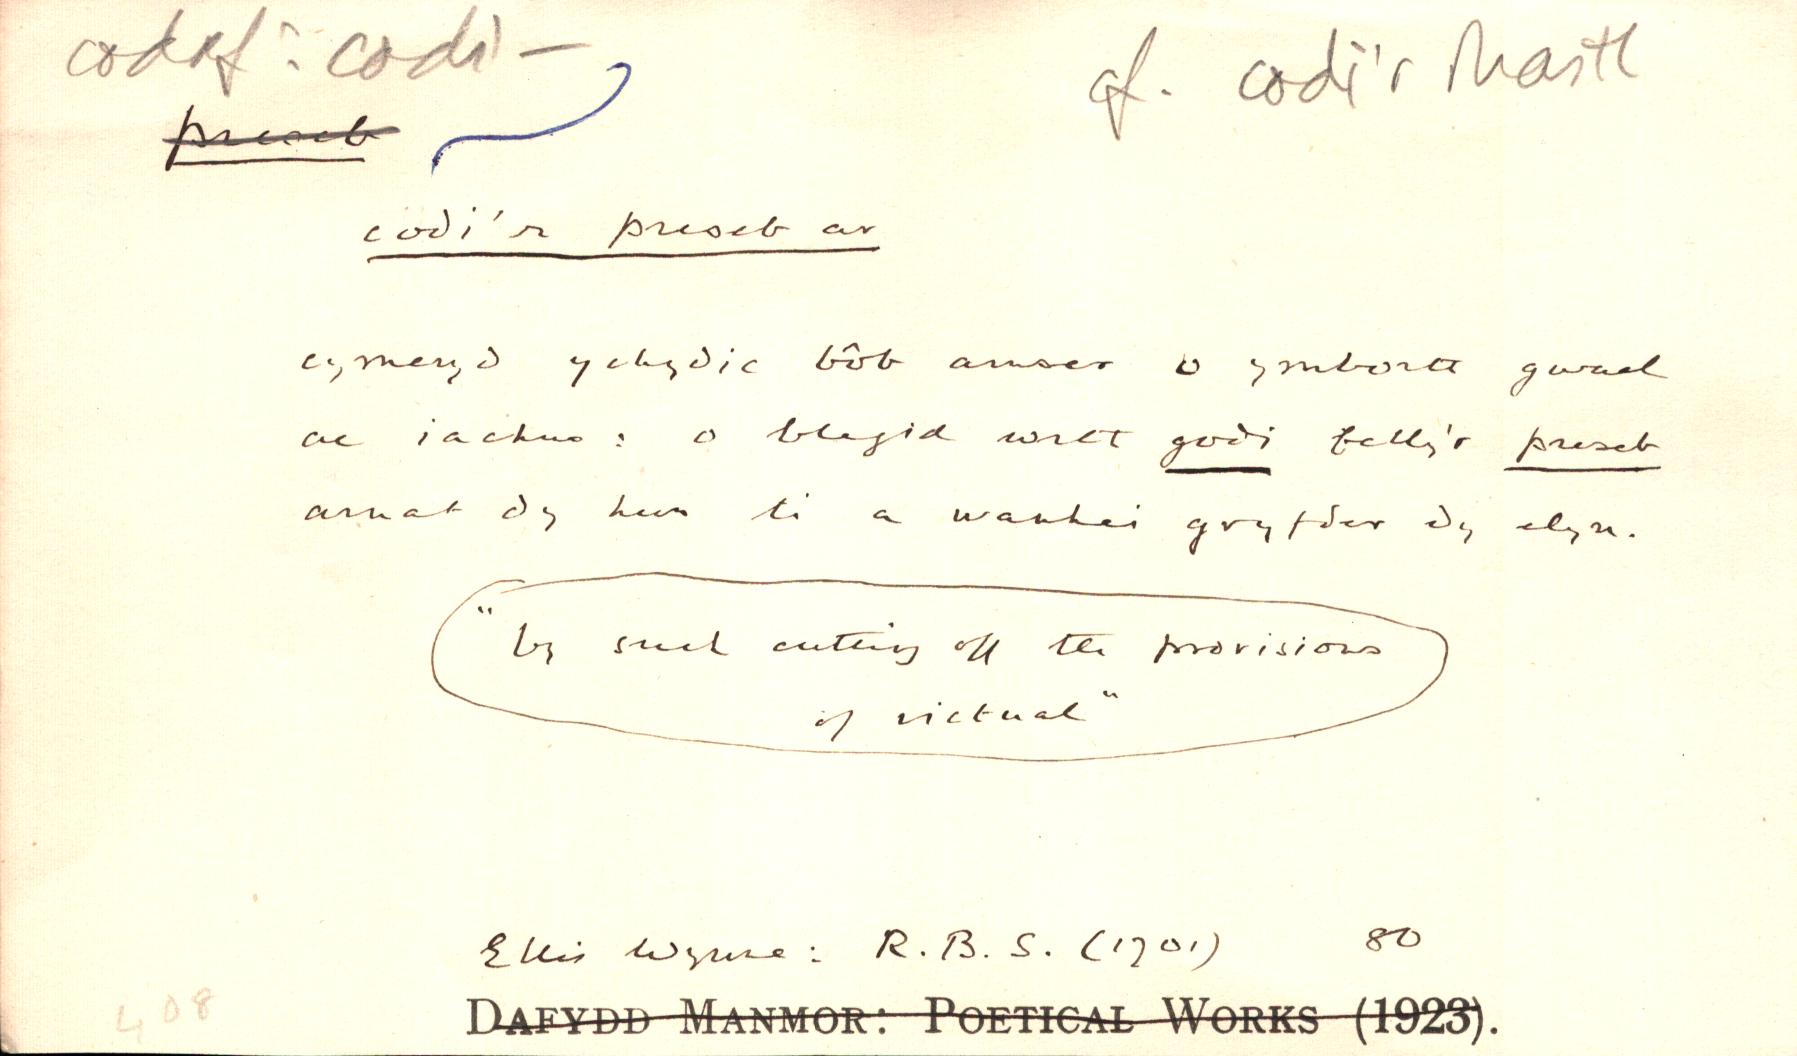 codaf: codi –
cf. codi'r llasth
preseb
codi'r preseb ar
cymeryd ychydic bôb amser o ymborth gwael
ac iachus: o blegid wrth godi felly'r preseb
arnat dy hun ti a wanhei gryfder dy elyn.
"by such cutting off the provisions
of victual"
Ellis Wynne: R.B.S. (1701) 80
DAFYDD MANMOR: POETICAL WORKS (1923).
408